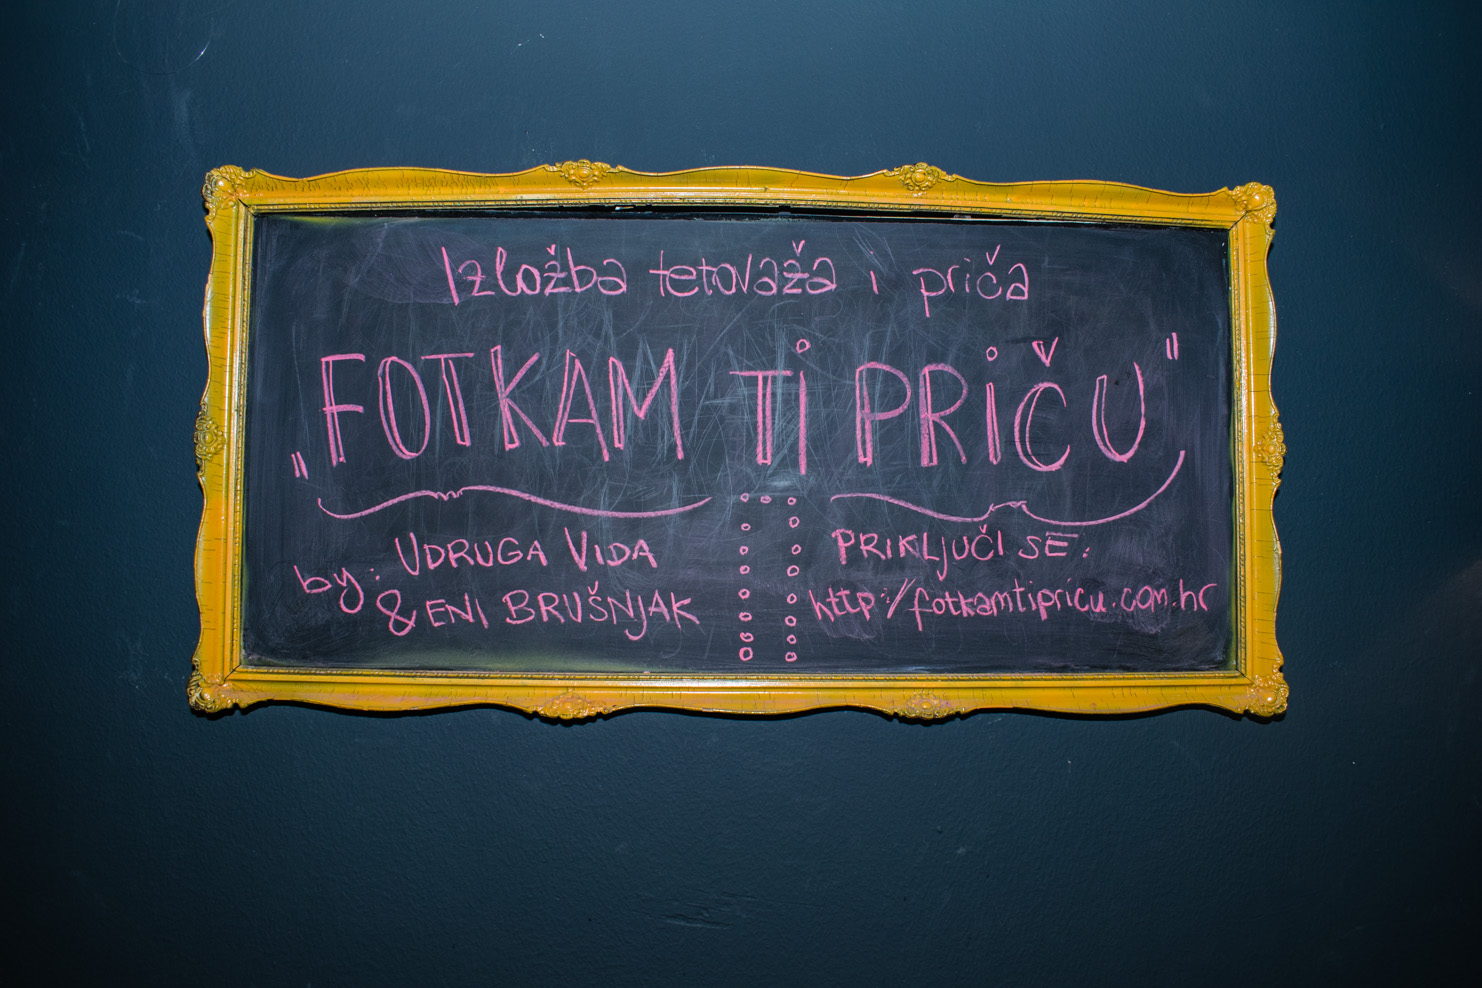 Izložba tetovaža i priča
„FOTKAM TI PRIČU"
by: UDRUGA VIDA
& ENI BRUŠNJAK
PRIKLJUČI SE:
http://fotkamtipricu.com.hr